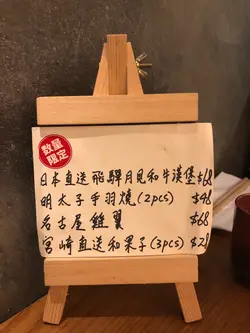 數量
限定
日本直送飛驒月見和牛漢堡 $168
明太子手羽燒(2pcs) $48
名古屋雞翼 $68
宮崎直送和果子(3pcs) $28